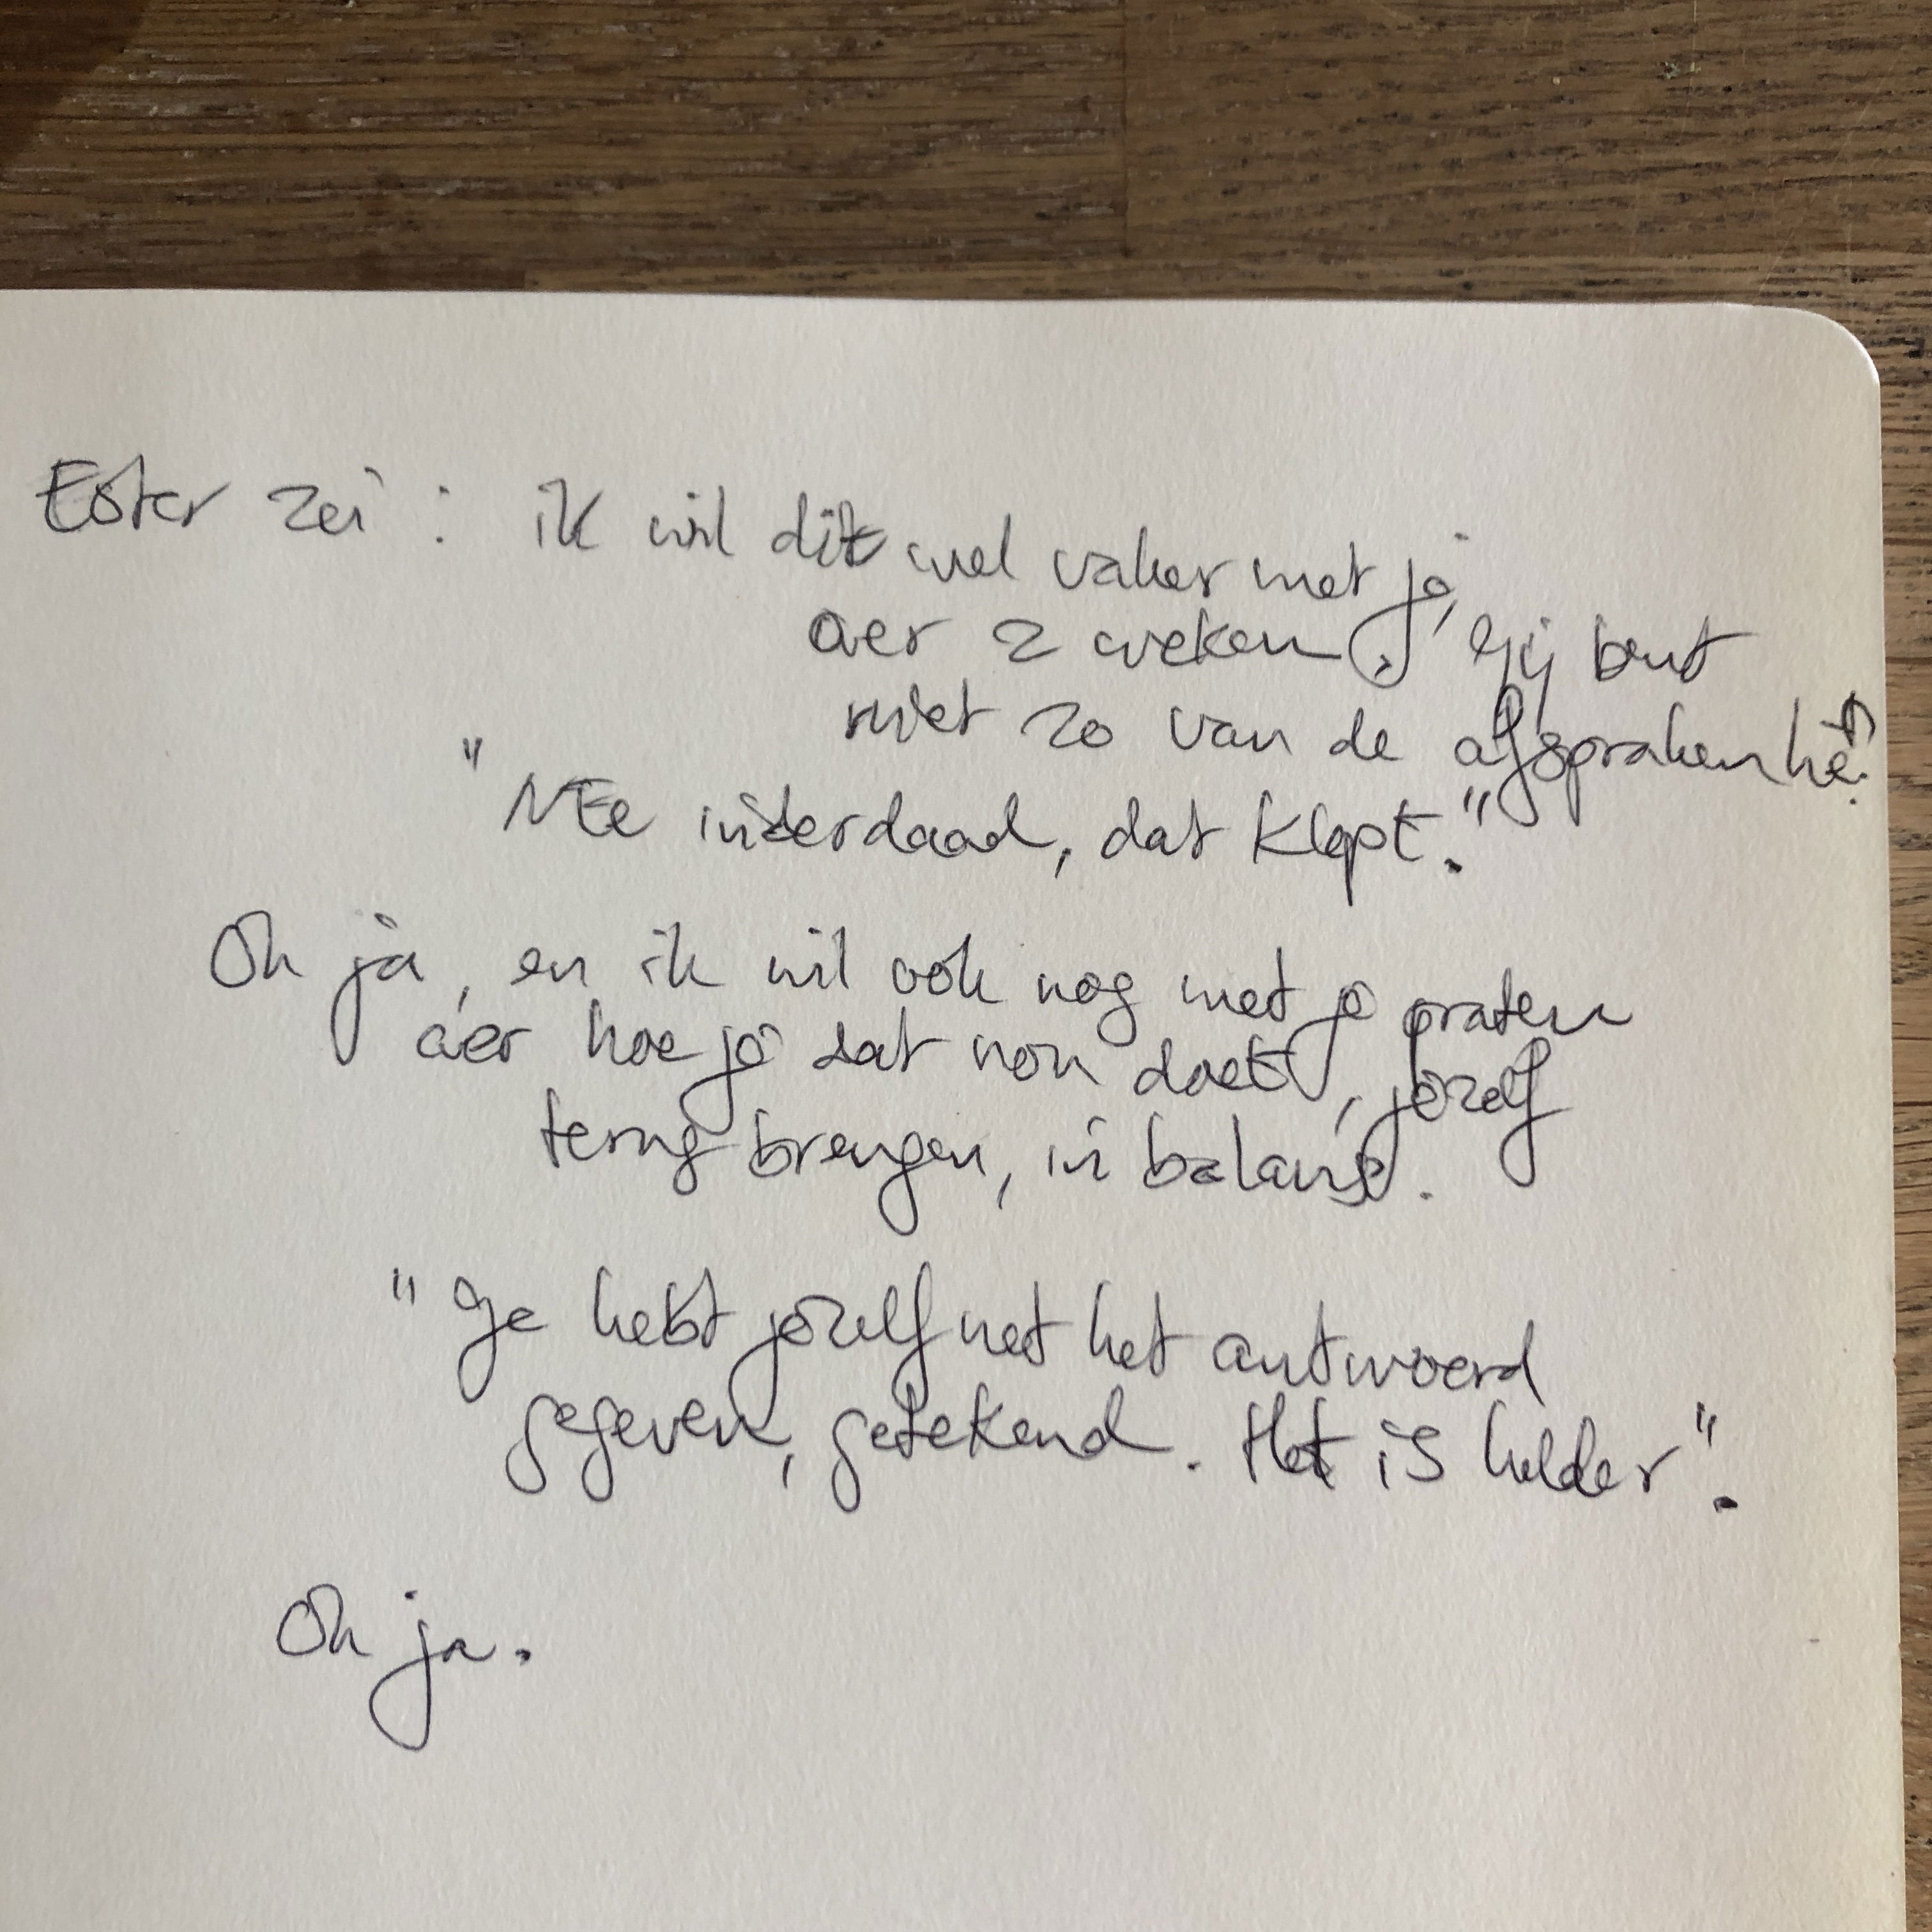 Ester zei : ik wil dit wel vaker met jo,
over 2 weken, gij bent
niet zo van de afspraken hè?
"NEe inderdaad, dat klopt."
Oh ja, en ik wil ook nog met jo praten
over hoe jo dat non doet, jozelf
terug brengen, in balans.
"ge hebt jozelf net het antwoord
gegeven, getekend. Het is helder".
Oh ja.